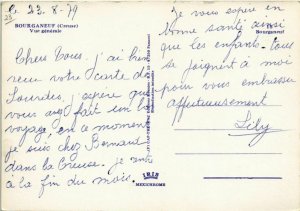 le 22.8.79
23
BOURGANEUF (Creuse)
Vue générale
Chers Tous. j'ai bien
reçu votre carte de
Lourdes, j'espère que
vous avez fait un bon
voyage, en ce moment
je suis chez Bernard
dans la Creuse. je rentre
à la fin du mois.
IRIS
MEXICHROME
je vous espère en
bonne santé aussi
Bourganeuf
que les enfants. tous
se joignent à moi
pour vous embrasser
affectueusement
Lily